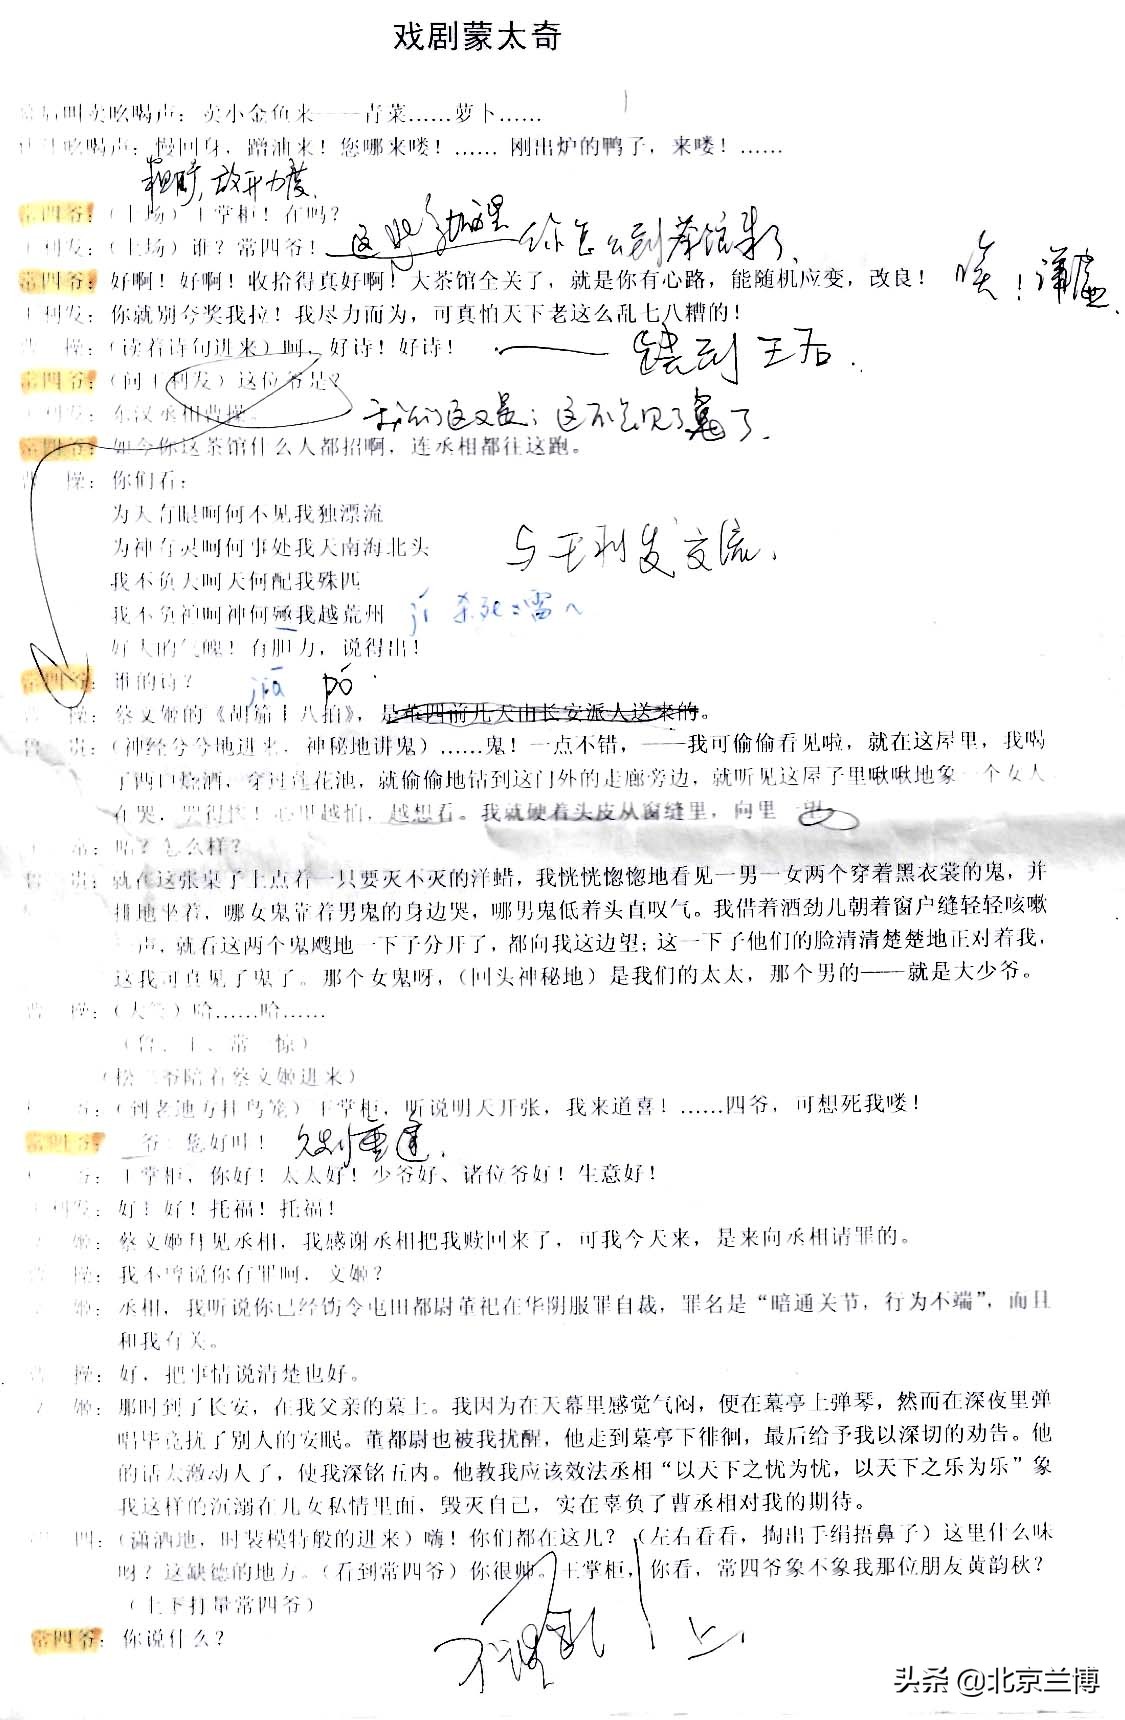 戏剧蒙太奇
幕后叫卖吆喝声：卖小金鱼来——青菜……萝卜……
吆喝声：慢回身，蹭油来！您哪来喽！…… 刚出炉的鸭子，来喽！……
放开力度.
常四爷：（上场）王掌柜！在吗？
王利发：（上场）谁？常四爷！
你怎么到茶馆来了
常四爷：好啊！好啊！收拾得真好啊！大茶馆全关了，就是你有心路，能随机应变，改良！
唉！谦虚.
王利发：你就别夸奖我拉！我尽力而为，可真怕天下老这么乱七八糟的！
曹　操：（读着诗句进来）呵，好诗！好诗！
到王右.
常四爷：（问王利发）这位爷是？
王利发：东汉丞相曹操。
常四爷：如今你这茶馆什么人都招啊，连丞相都往这跑。
曹　操：你们看：
为天有眼呵何不见我独漂流
为神有灵呵何事处我天南海北头
与王利发交流.
我不负天呵天何配我殊匹
我不负神呵神何殛我越荒州
jí 杀死
好大的气魄！有胆力，说得出！
常四爷：谁的诗？
jiā
曹　操：蔡文姬的《胡笳十八拍》，是董四前几天由长安派人送来的。
鲁　贵：（神经兮兮地进来，神秘地讲鬼）……鬼！一点不错，——我可偷偷看见啦，就在这屋里，我喝
了两口烧酒，穿过莲花池，就偷偷地钻到这门外的走廊旁边，就听见这屋子里啾啾地象一个女人
在哭，哭得惨！心里越怕，越想看。我就硬着头皮从窗缝里，向里一望
常：哈？怎么样？
鲁　贵：就在这张桌子上点着一只要灭不灭的洋蜡，我恍恍惚惚地看见一男一女两个穿着黑衣裳的鬼，并
排地坐着，哪女鬼靠着男鬼的身边哭，哪男鬼低着头直叹气。我借着酒劲儿朝着窗户缝轻轻咳嗽
一声，就看这两个鬼飕地一下子分开了，都向我这边望；这一下子他们的脸清清楚楚地正对着我，
这我可真见了鬼了。那个女鬼呀，（回头神秘地）是我们的太太，那个男的——就是大少爷。
曹　操：（大笑）哈……哈……
（鲁、王、常一惊）
（松二爷陪着蔡文姬进来）
（到老地方挂鸟笼）王掌柜，听说明天开张，我来道喜！……四爷，可想死我喽！
常四爷：二爷！您好叫！
久别重逢.
王掌柜，你好！太太好！少爷好、诸位爷好！生意好！
王利发：好！好！托福！托福！
文　姬：蔡文姬拜见丞相，我感谢丞相把我赎回来了，可我今天来，是来向丞相请罪的。
曹　操：我不曾说你有罪呵，文姬？
文　姬：丞相，我听说你已经饬令屯田都尉董祀在华阴服罪自裁，罪名是“暗通关节，行为不端”，而且
和我有关。
曹　操：好，把事情说清楚也好。
文　姬：那时到了长安，在我父亲的墓上。我因为在天幕里感觉气闷，便在墓亭上弹琴，然而在深夜里弹
唱毕竟扰了别人的安眠。董都尉也被我扰醒，他走到墓亭下徘徊，最后给予我以深切的劝告。他
的话太激动人了，使我深铭五内。他教我应该效法丞相“以天下之忧为忧，以天下之乐为乐”象
我这样的沉溺在儿女私情里面，毁灭自己，实在辜负了曹丞相对我的期待。
四：（潇洒地，时装模特般的进来）嗨！你们都在这儿？（左右看看，掏出手绢捂鼻子）这里什么味
呀？这缺德的地方。（看到常四爷）你很帅。王掌柜，你看，常四爷象不象我那位朋友黄韵秋？
（上下打量常四爷）
常四爷：你说什么？
头条 @北京兰博